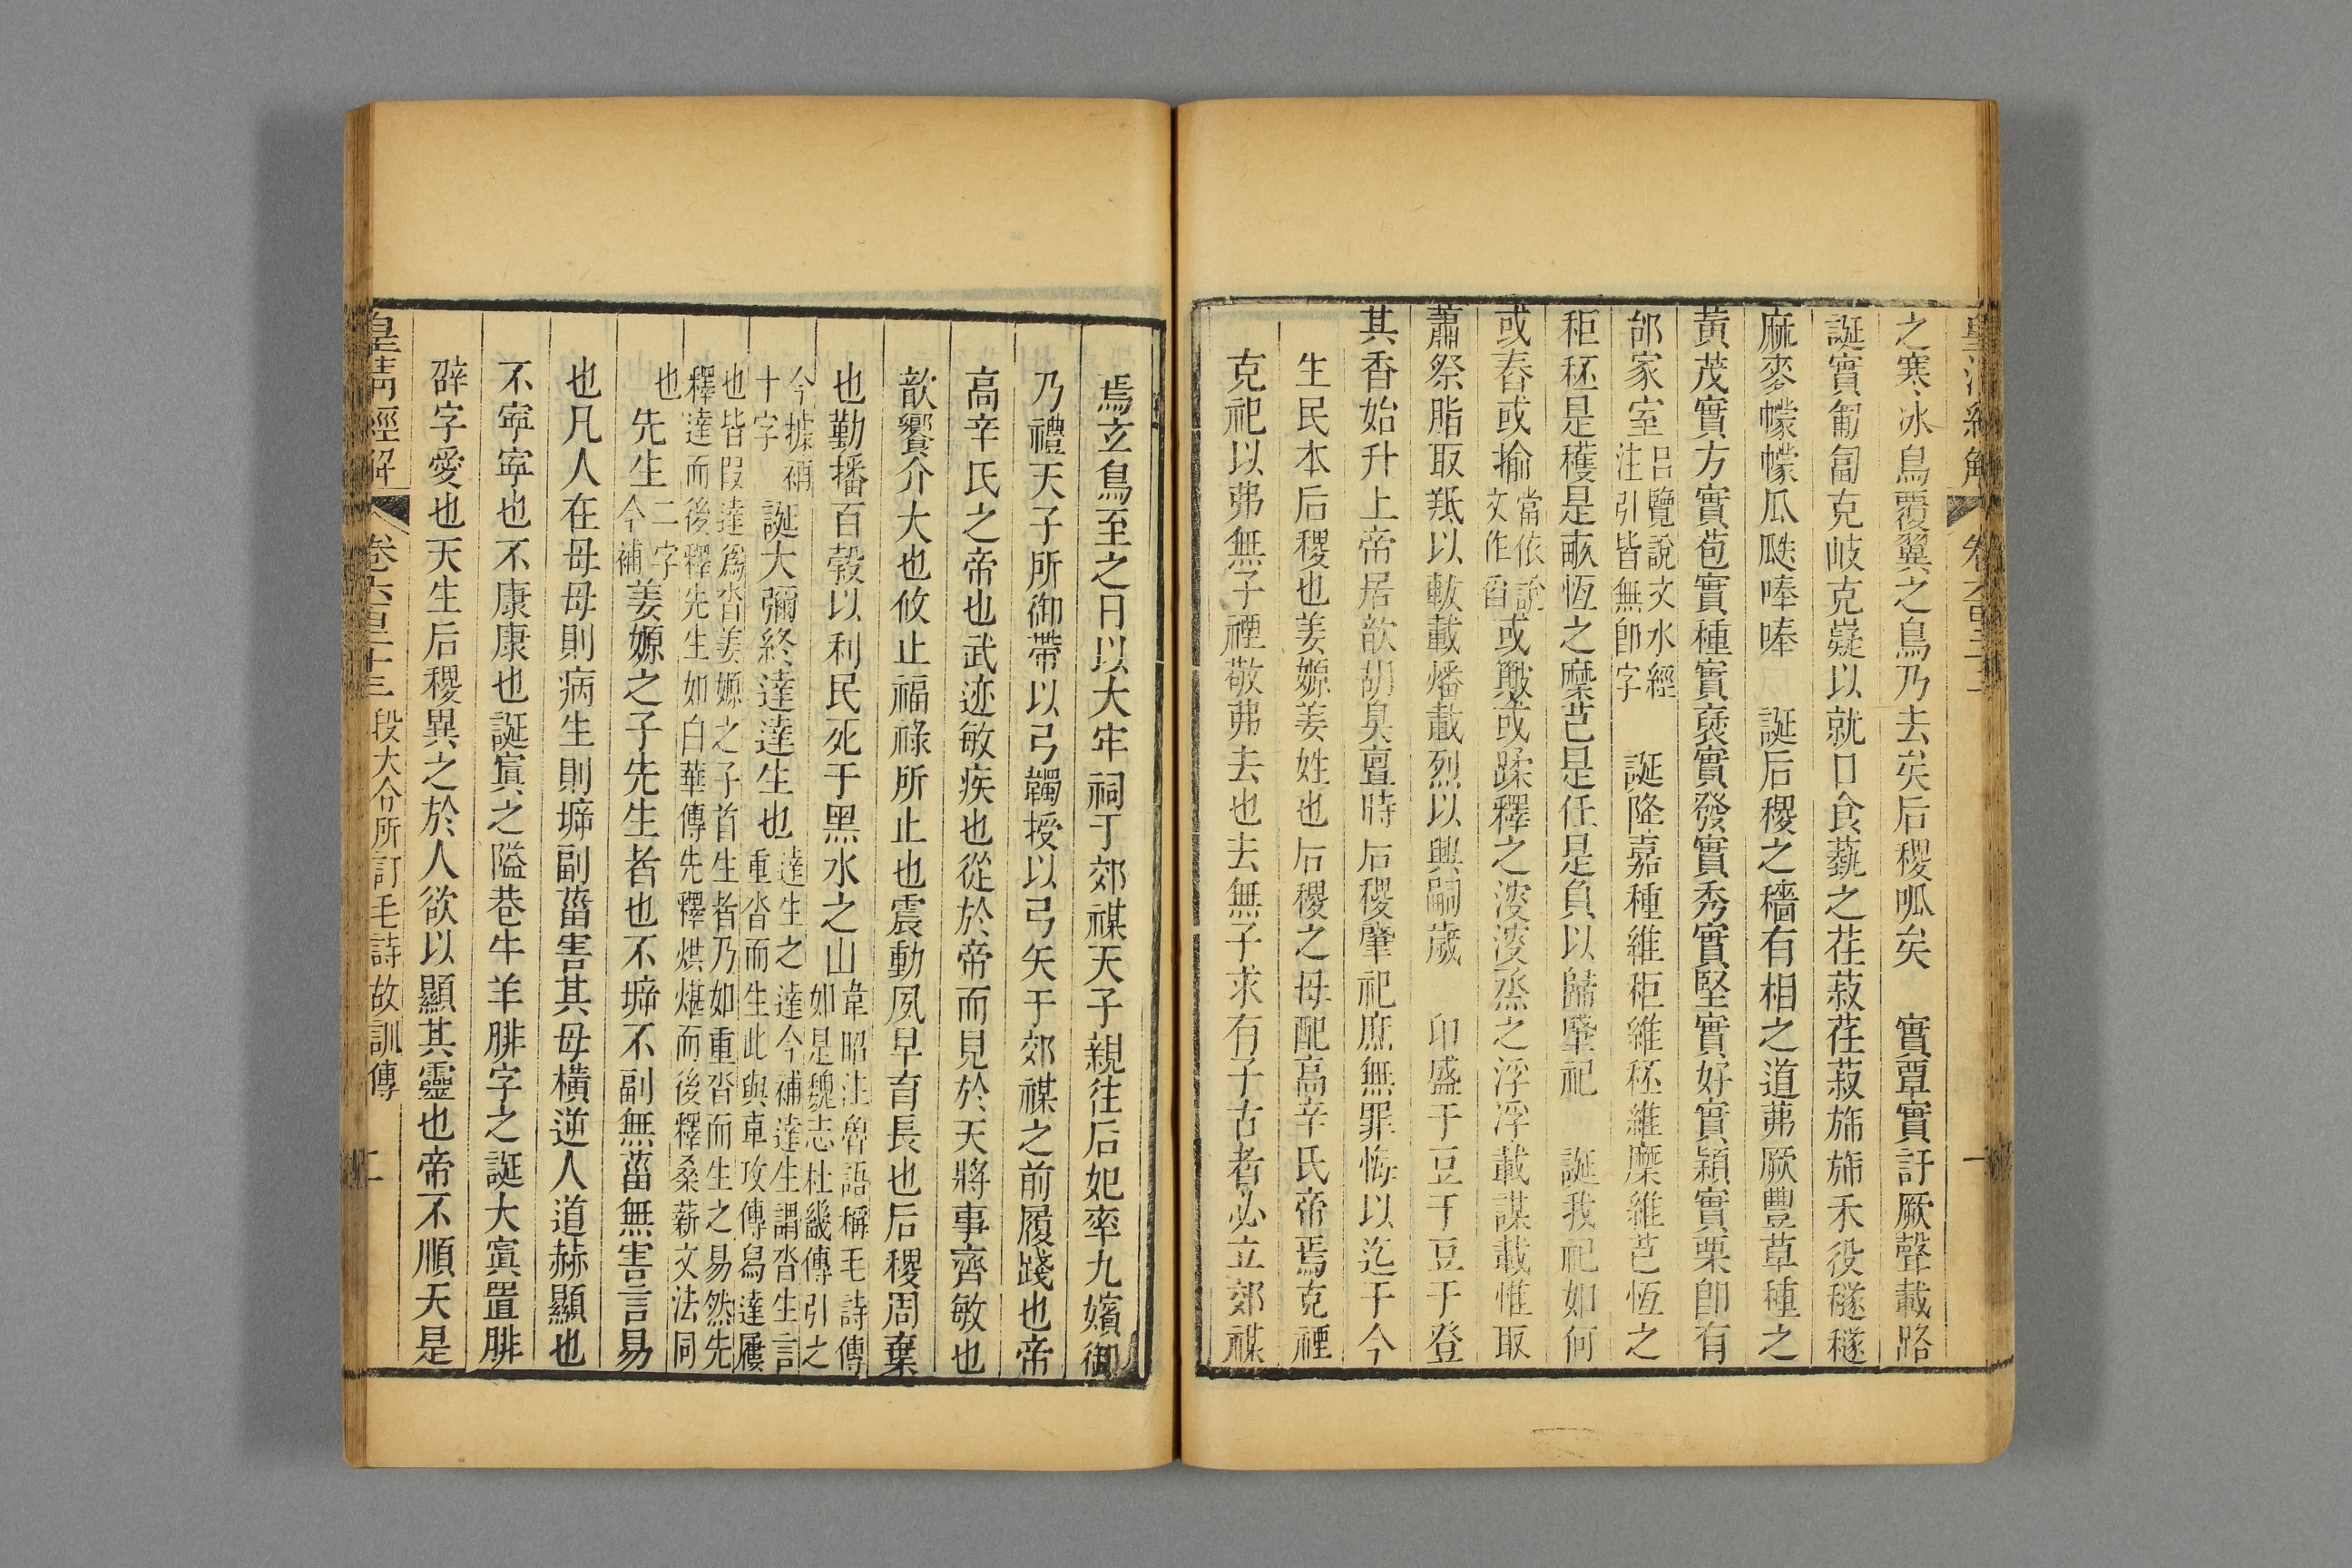 之寒冰鳥覆翼之鳥乃去矣后稷呱矣　實覃實訏厥聲載路
誕實匍匐克岐克嶷以就口食蓺之荏菽荏菽斾斾禾役穟穟
麻麥幪幪瓜瓞唪唪　誕后稷之穡有相之道茀厥豐草種之
黃茂實方實苞實種實褎實發實秀實堅實好實穎實栗卽有
邰家室呂覽說文水經注引皆無卽字　誕降嘉種維秬維秠維穈維芑恆之
秬秠是穫是畝恆之穈芑是任是負以歸肇祀　誕我祀如何
或舂或揄當依說文作舀或簸或蹂釋之浚浚烝之浮浮載謀載惟取
蕭祭脂取羝以軷載燔載烈以興嗣歲　卬盛于豆于豆于登
其香始升上帝居歆胡臭亶時后稷肇祀庶無罪悔以迄于今
生民本后稷也姜嫄姜姓也后稷之母配高辛氏帝焉克禋
克祀以弗無子禋敬弗去也去無子求有子古者必立郊禖
焉玄鳥至之日以大牢祠于郊禖天子親往后妃率九嬪御
乃禮天子所御帶以弓韣授以弓矢于郊禖之前履踐也帝
高辛氏之帝也武迹敏疾也從於帝而見於天將事齊敏也
歆饗介大也攸止福祿所止也震動夙早育長也后稷周棄
也勤播百穀以利民死于黑水之山韋昭注魯語稱毛詩傳如是魏志杜畿傳引之
今據補十字誕大彌終達達生也達生之達今補達生謂沓生言重沓而生此與車攻傳舄達屨
也皆叚達爲沓姜嫄之子首生者乃如重沓而生之易然先釋達而後釋先生如白華傳先釋烘煁而後釋桑薪文法同
也先生二字今補姜嫄之子先生者也不坼不副無菑無害言易
也凡人在母母則病生則坼副菑害其母橫逆人道赫顯也
不寧寧也不康康也誕寘之隘巷牛羊腓字之誕大寘置腓
辟字愛也天生后稷異之於人欲以顯其靈也帝不順天是
皇清經解　卷六百二十三　段大令所訂毛詩故訓傳　二